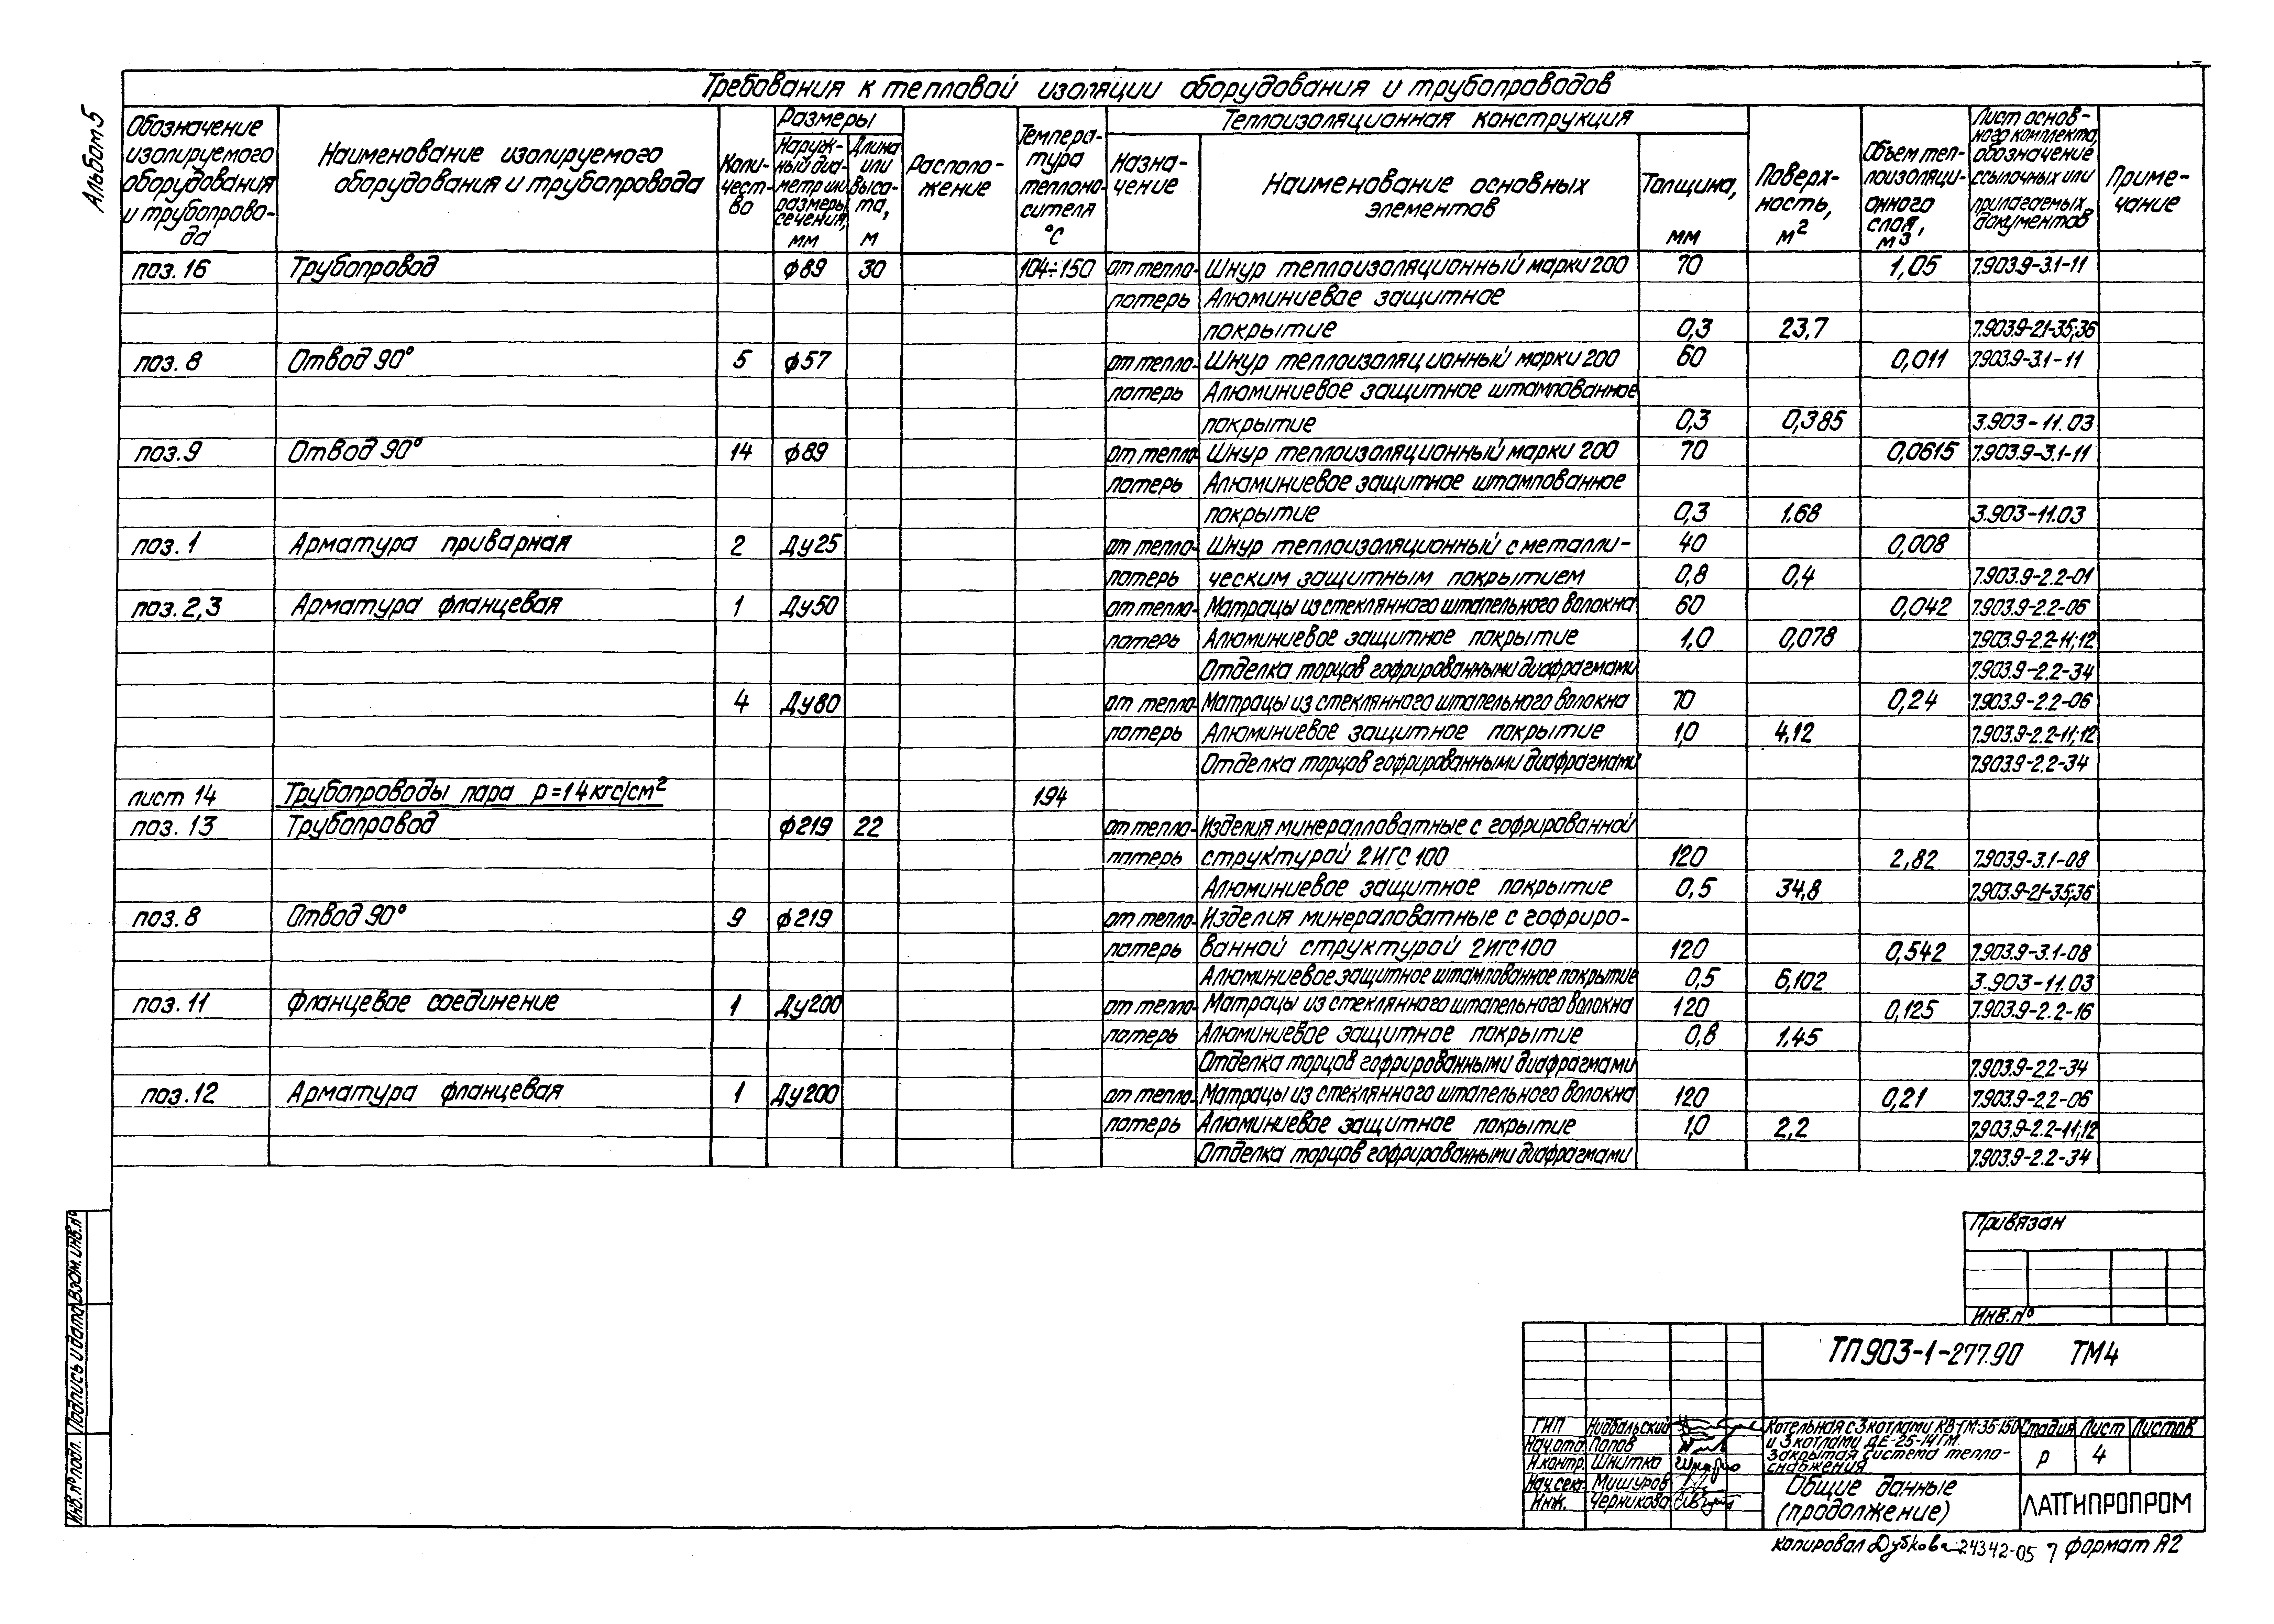 Альбом 5
Требования к тепловой изоляции оборудования и трубопроводов
Обозначение изолируемого оборудования и трубопрово-да
Наименование изолируемого оборудования и трубопровода
Коли-чест-во
Размеры
Наруж-ный диа-метр или размеры сечения, мм
Длина или высо-та, м
Располо-жение
Темпера-тура теплоно-сителя °С
Теплоизоляционная конструкция
Назна-чение
Наименование основных элементов
Толщина, мм
Поверх-ность, м²
Объем теп-лоизоляци-онного слоя, м3
Лист основ-ного комплекта, обозначение ссылочных или прилагаемых документов
Приме-чание
поз. 16 Трубопровод ф89 30 104÷150 от тепло- Шнур теплоизоляционный марки 200 70 1,05 7.903.9-3.1-11
потерь Алюминиевое защитное
покрытие 0,3 23,7 7.903.9-2.1-35;36
поз. 8 Отвод 90° 5 ф57 от тепло- Шнур теплоизоляционный марки 200 60 0,011 7.903.9-3.1-11
потерь Алюминиевое защитное штампованное
покрытие 0,3 0,385 3.903-11.03
поз. 9 Отвод 90° 14 ф89 от тепло- Шнур теплоизоляционный марки 200 70 0,0615 7.903.9-3.1-11
потерь Алюминиевое защитное штампованное
покрытие 0,3 1.68 3.903-11.03
поз. 1 Арматура приварная 2 Ду25 от тепло- Шнур теплоизоляционный с металли- 40 0,008
потерь ческим защитным покрытием 0,8 0,4 7.903.9-2.2-01
поз. 2,3 Арматура фланцевая 1 Ду50 от тепло- Матрацы из стеклянного штапельного волокна 60 0,042 7.903.9-2.2-06
потерь Алюминиевое защитное покрытие 1,0 0,078 7.903.9-2.2-11;12
Отделка торцов гофрированными диафрагмами 7.903.9-2.2-34
4 Ду80 от тепло- Матрацы из стеклянного штапельного волокна 70 0,24 7.903.9-2.2-06
потерь Алюминиевое защитное покрытие 1,0 4,12 7.903.9-2.2-11;12
Отделка торцов гофрированными диафрагмами 7.903.9-2.2-34
лист 14 Трубопроводы пара р=14кгс/см² 194
поз. 13 Трубопровод ф219 22 от тепло- Изделия минералловатные с гофрированной
потерь структурой 2ИГС 100 120 2,82 7.903.9-3.1-08
Алюминиевое защитное покрытие 0,5 34,8 7.903.9-2.1-35;36
поз. 8 Отвод 90° 9 ф219 от тепло- Изделия минераловатные с гофриро-
потерь ванной структурой 2ИГС100 120 0,542 7.903.9-3.1-08
Алюминиевое защитное штампованное покрытие 0,5 6,102 3.903-11.03
поз. 11 Фланцевое соединение 1 Ду200 от тепло- Матрацы из стеклянного штапельного волокна 120 0,125 7.903.9-2.2-16
потерь Алюминиевое защитное покрытие 0,8 1.45
Отделка торцов гофрированными диафрагмами 7.903.9-2.2-34
поз. 12 Арматура фланцевая 1 Ду200 от тепло- Матрацы из стеклянного штапельного волокна 120 0,21 7.903.9-2.2-06
потерь Алюминиевое защитное покрытие 1,0 2,2 7.903.9-2.2-11;12
Отделка торцов гофрированными диафрагмами 7.903.9-2.2-34
Привязан
Инв. №
ТП903-1-277.90 ТМ4
ГИП Нидбальский
Нач.отд Попов
Н.контр. Шнитка
Нач.сект. Мишуров
Инж. Черникова
Котельная с 3 котлами КВ-ГМ-35-150
и 3 котлами ДЕ-25-14ГМ.
Закрытая система тепло-
снабжения
Стадия Лист Листов
Р 4
Общие данные
(продолжение)
ЛАТГИПРОПРОМ
Инв. № подл. Подпись и дата Взам. инв. №
Копировал Дубкова 24342-05 7 Формат А2